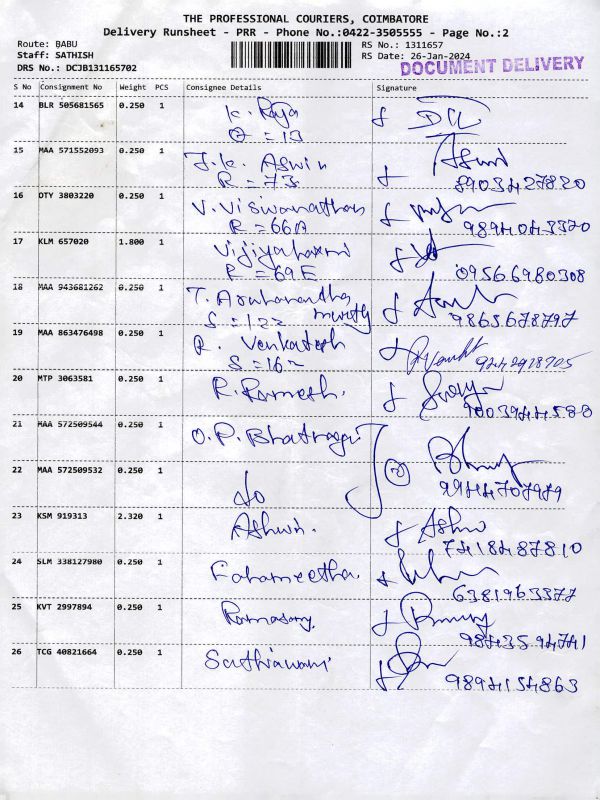 THE PROFESSIONAL COURIERS, COIMBATORE
Delivery Runsheet - PRR - Phone No.:0422-3505555 - Page No.:2
Route: BABU
Staff: SATHISH
DRS No.: DCJB131165702
RS No.: 1311657
RS Date: 26-Jan-2024
DOCUMENT DELIVERY
S No Consignment No Weight PCS Consignee Details Signature
14 BLR 505681565 0.250 1 K. Raja
= 13
15 MAA 571552093 0.250 1 J.K. Aswin
R = 73 8903427820
16 DTY 3803220 0.250 1 V. Viswanathan
R = 66A 9894043370
17 KLM 657020 1.800 1 Vijiyalaxmi
R = 69E 09566980308
18 MAA 943681262 0.250 1 T.
S = 122 9865678797
19 MAA 863476498 0.250 1 R. Venkatesh
S = 16 9442918705
20 MTP 3063581 0.250 1 R. Ramesh.
9003944580
21 MAA 572509544 0.250 1 O.P. Bhatnagar
22 MAA 572509532 0.250 1 do
9944707979
23 KSM 919313 2.320 1 Ashwin.
7418487810
24 SLM 338127980 0.250 1
6381963377
25 KVT 2997894 0.250 1 Ramasamy.
9843594741
26 TCG 40821664 0.250 1
9894154863